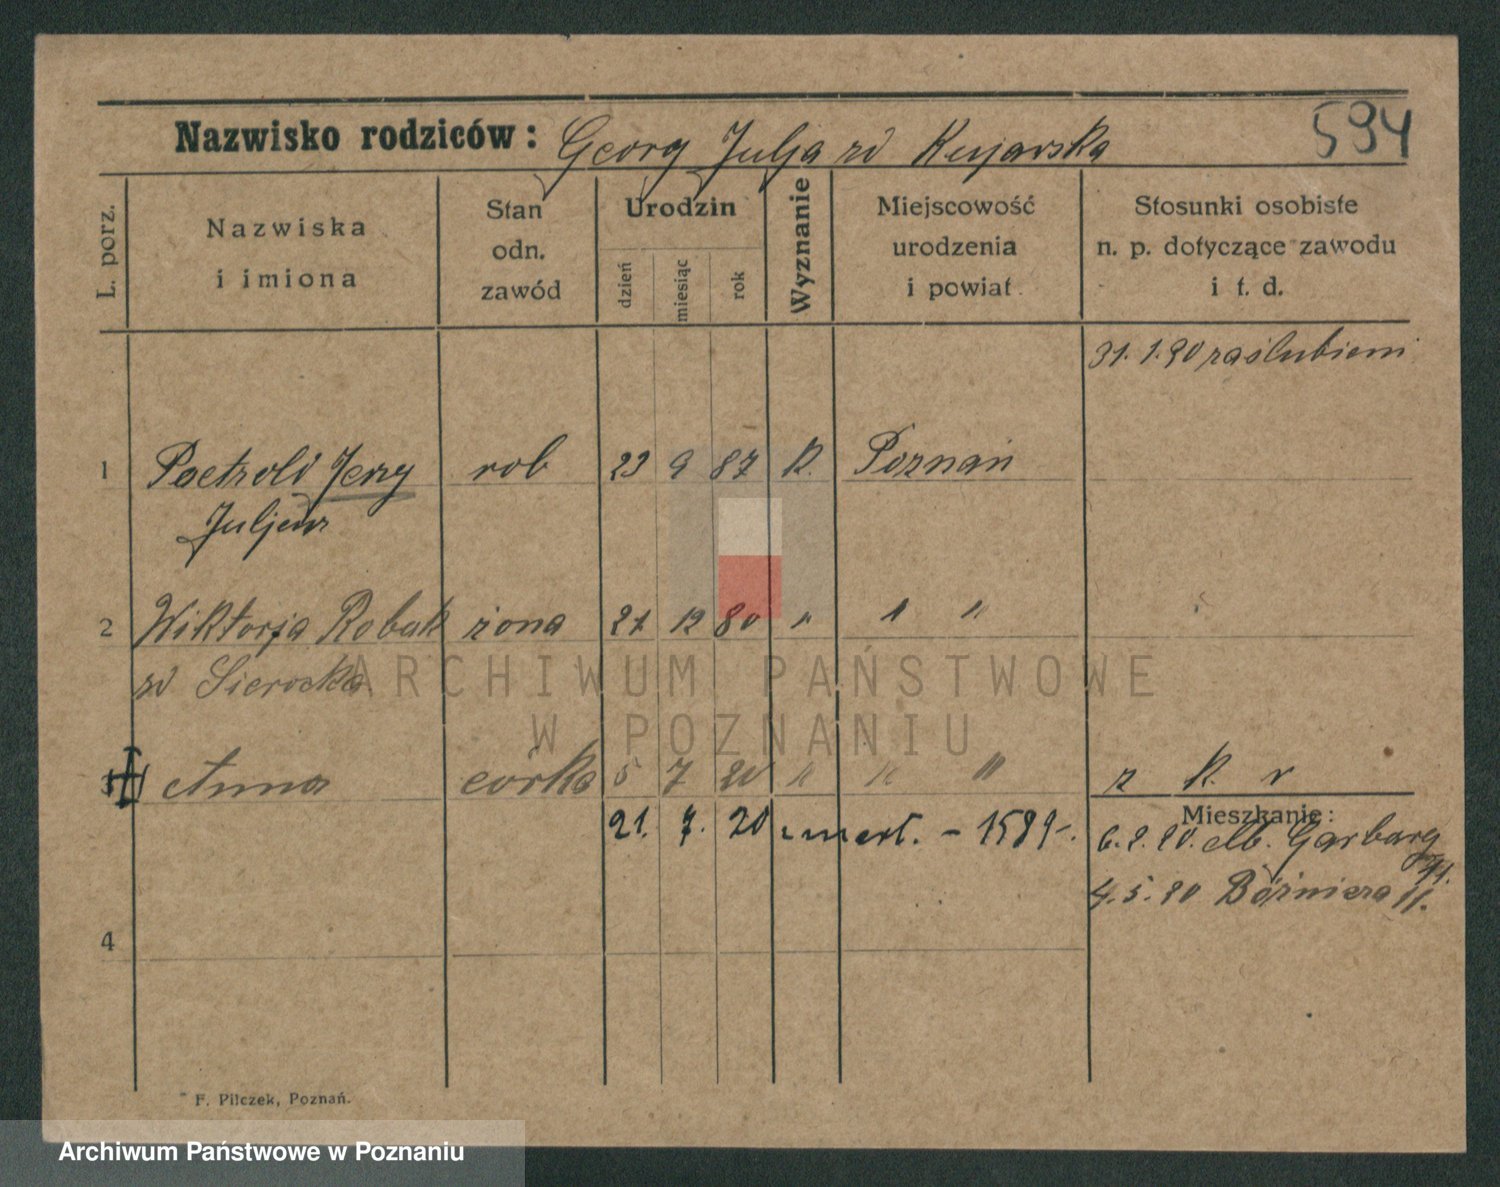 594
Nazwisko rodziców: Georg Julja zd Kujawska
L. porz.
Nazwiska
i imiona
Stan
odn.
zawód
Urodzin
dzień
miesiąc
rok
Wyznanie
Miejscowość
urodzenia
i powiat
Stosunki osobiste
n. p. dotyczące zawodu
i t. d.
31. 1. 20 zaślubieni
1 Paetzold Jerzy rob 23 9 87 K. Poznań
Juljusz
2 Wiktorja Robak żona 21 12 80 " " "
zd Sierocka
3 Anna córka 5 7 20 " " " z K r
21. 7. 20 zmarł. - 1589-.
Mieszkanie:
6. 2. 20. Garbary 41.
4. 5. 20 Bóźnicza 11.
4
F. Pilczek, Poznań.
ARCHIWUM PAŃSTWOWE
W POZNANIU
Archiwum Państwowe w Poznaniu